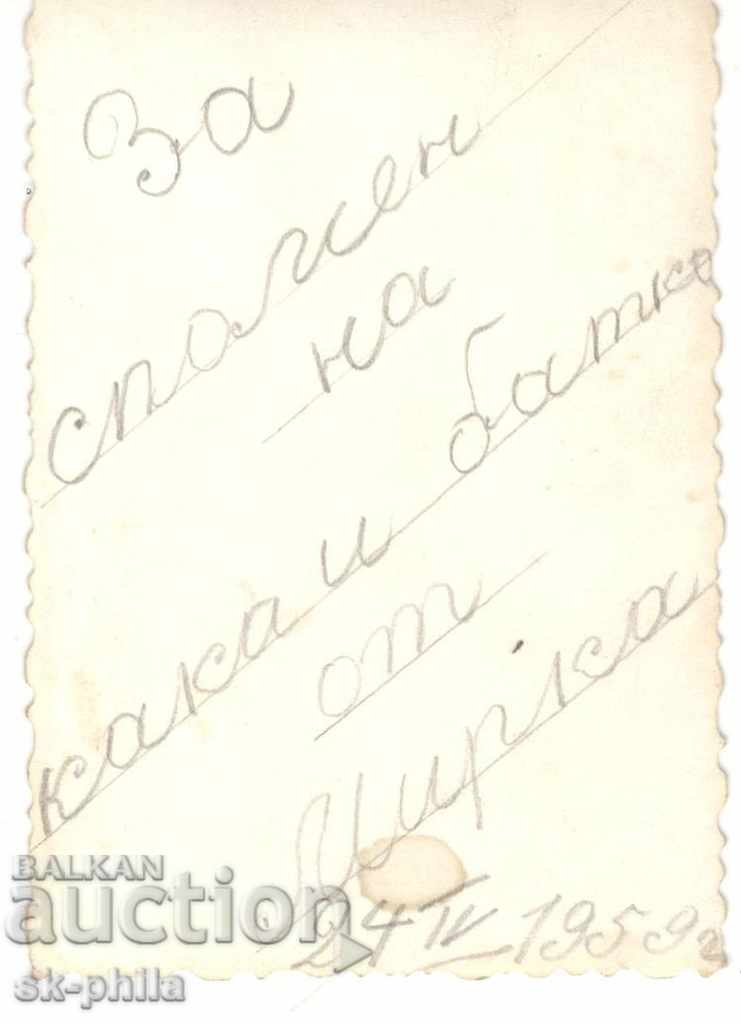 За
спомен
на
кака и батко
от
Мирка
24 IV 1959 г
BALKAN
auction
sk-phila